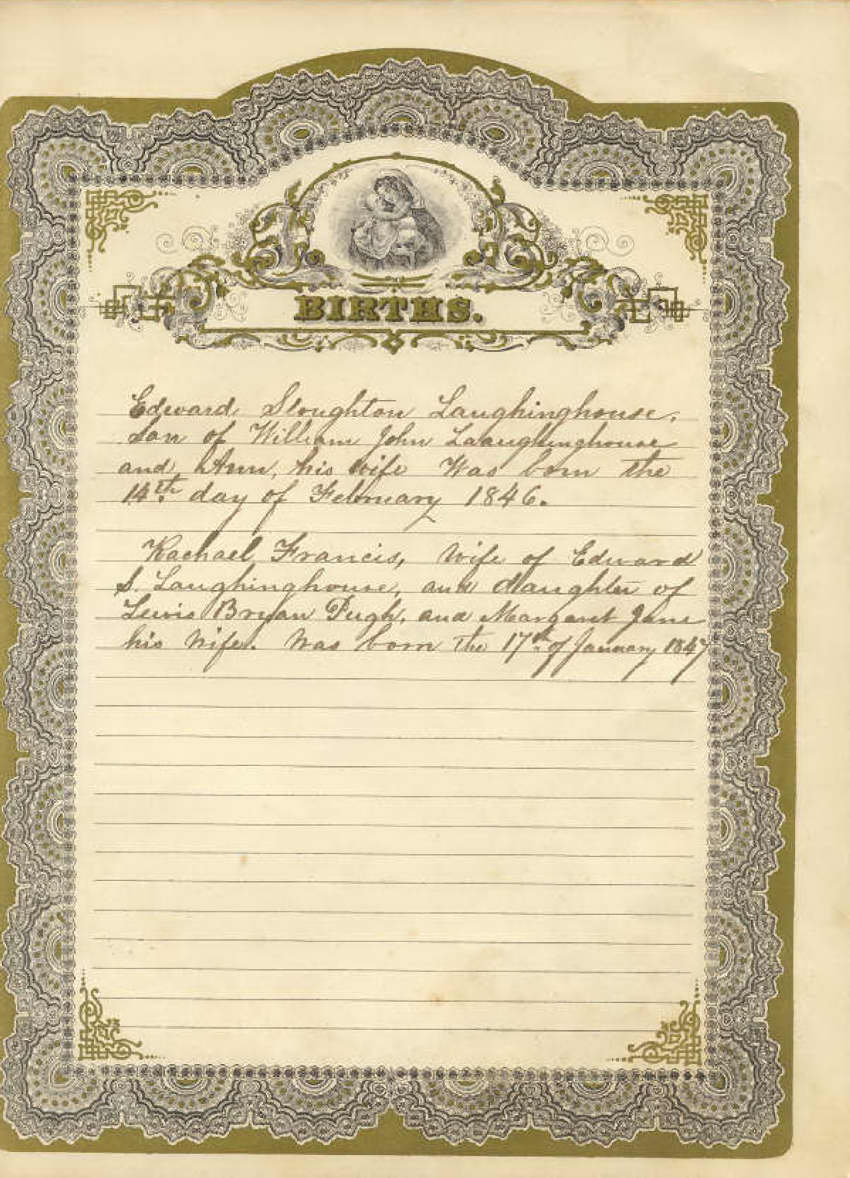 BIRTHS.
Edward Sloughton Laughinghouse,
Son of William John Laaughinghouse
and Ann, his wife Was born the
14th day of February 1846.
Rachael Francis, Wife of Edward
S. Laughinghouse, and daughter of
Lewis Bryan Pugh, and Margaret Jane
his Wife. Was born The 17th of January 1847